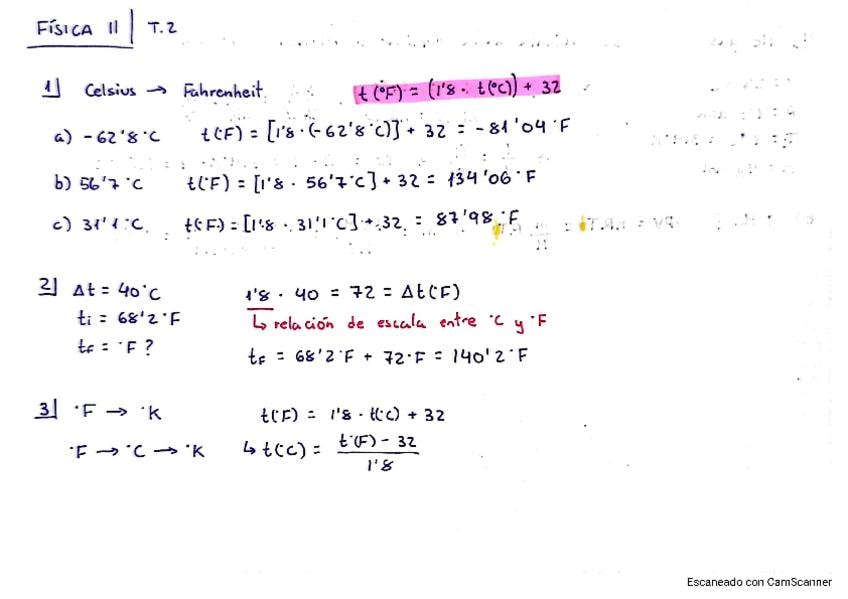 FÍSICA II T.2
1) Celsius → Fahrenheit t(°F) = (1'8 · t(°C)) + 32
a) -62'8°C t(°F) = [1'8 · (-62'8°C)] + 32 = -81'04 °F
b) 56'7°C t(°F) = [1'8 · 56'7°C] + 32 = 134'06 °F
c) 31'1°C. t(°F) = [1'8 · 31'1°C] + 32 = 87'98 °F
2) Δt = 40°C 1'8 · 40 = 72 = Δt(°F)
ti = 68'2°F ↳ relación de escala entre °C y °F
tF = °F? tF = 68'2°F + 72°F = 140'2°F
3) °F → °K t(°F) = 1'8 · t(°C) + 32
°F → °C → °K ↳ t(°C) = t°(F) - 32
1'8
Escaneado con CamScanner